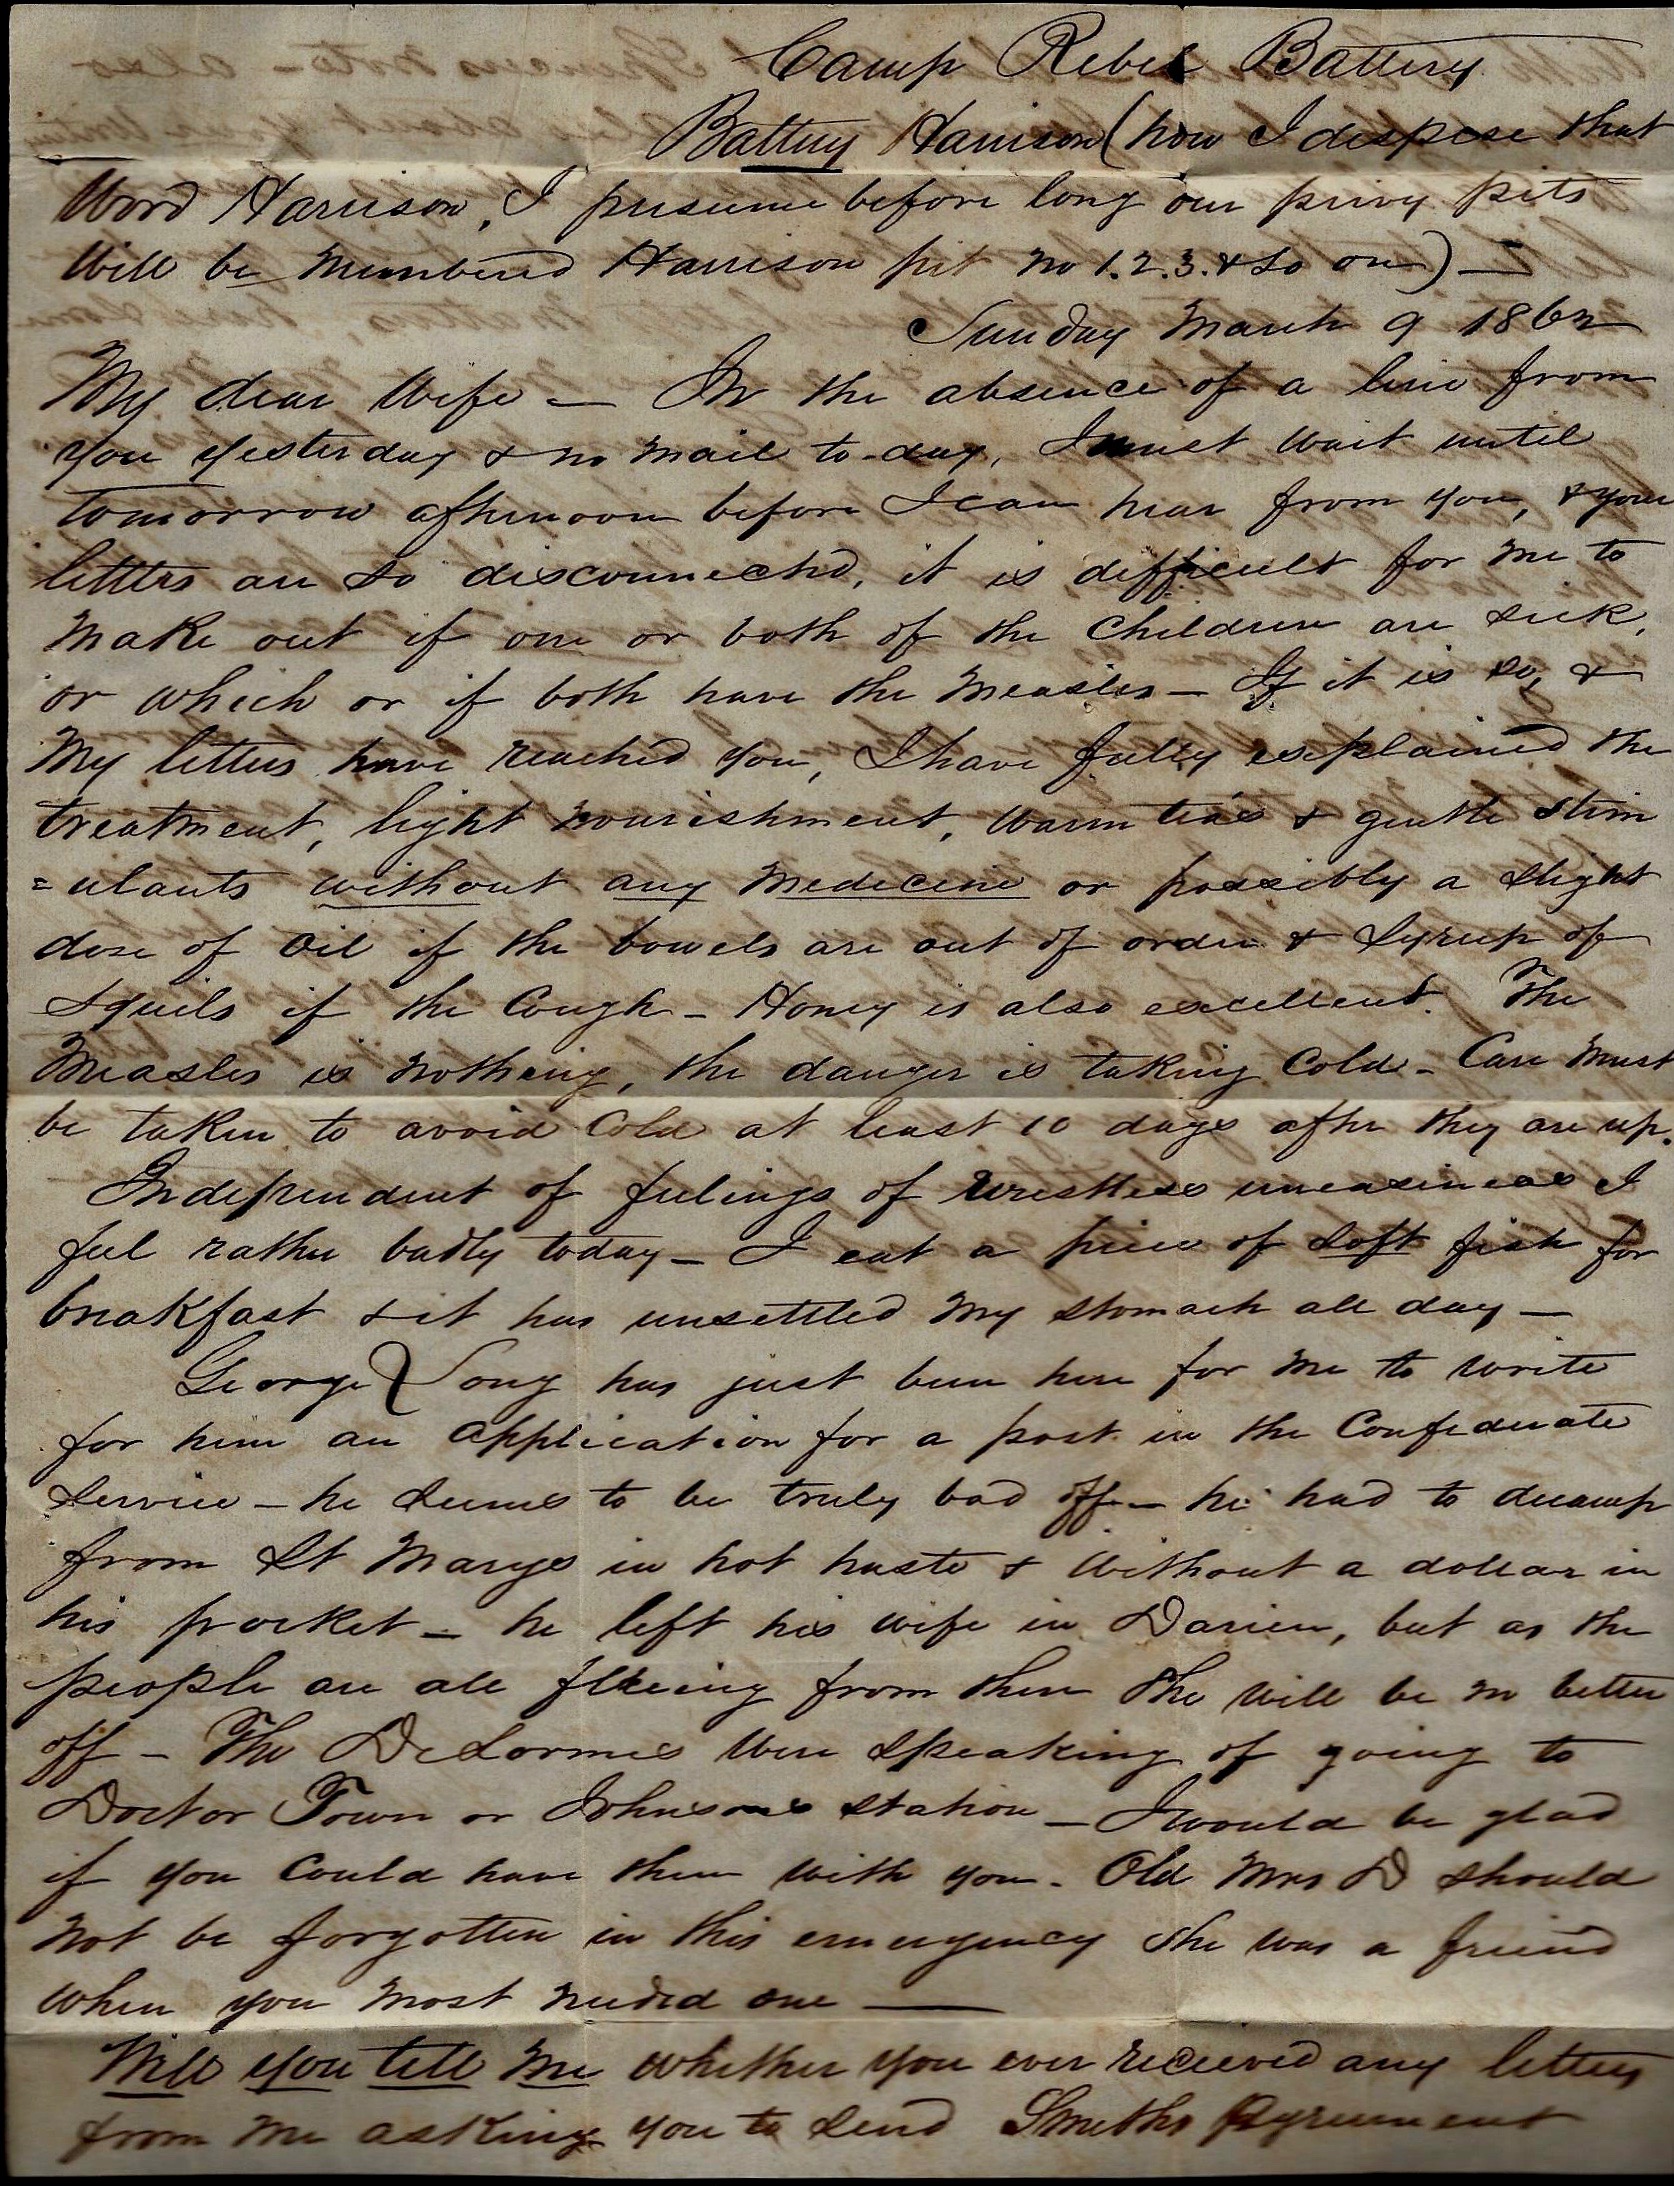 Camp Rebel Battery
Battery Harrison (how I despise that
Word Harrison, I presume before long our privy pits
Will be numbered Harrison pit no 1.2.3. & so on) —
Sunday March 9 1862
My dear Wife — In the absence of a line from
you yesterday & no mail to-day, I must wait until
tomorrow afternoon before I can hear from you, & your
letters are so disconnected, it is difficult for me to
make out if one or both of the Children are sick,
or which or if both have the measles — If it is so, &
My letters have reached you, I have fully explained the
treatment, light nourishment, warm teas & gentle stim
=ulants without any medicine or possibly a slight
dose of oil if the bowels are out of order & Syrup of
Squils if the Cough — Honey is also excellent. The
Measles is nothing, the danger is taking Cold — Care must
be taken to avoid Cold at least 10 days after they are up.
Independent of feelings of restless uneasiness I
feel rather badly today — I eat a piece of soft fish for
breakfast & it has unsettled my stomach all day —
George Long has just been here for me to write
for him an application for a post in the Confederate
Service — he seems to be truly bad off — he had to decamp
from St Marys in hot haste & without a dollar in
his pocket — he left his wife in Darien, but as the
people are all fleeing from there she will be no better
off — The DeLormes were speaking of going to
Doctor Town or Johnsons station — I would be glad
if you could have them with you. Old Mrs D should
not be forgotten in this emergency she was a friend
when you most needed one —
Will you tell me whether you ever recieved any letters
from me asking you to send Smiths Agreement